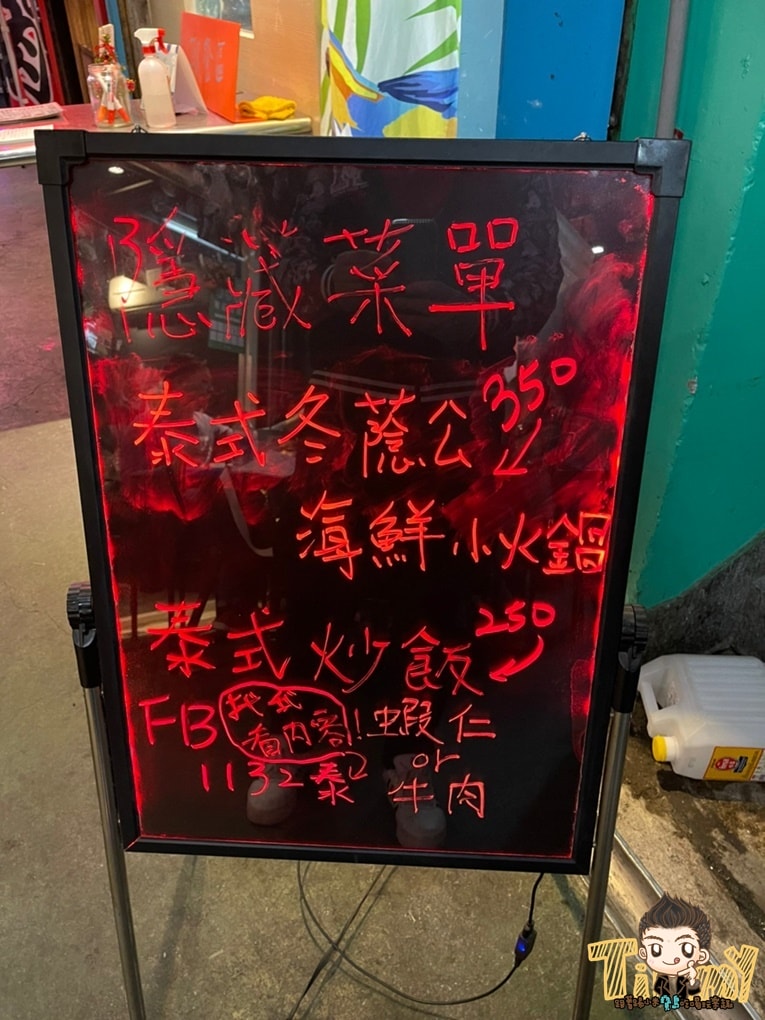 隱藏菜單
泰式冬蔭公 350
海鮮小火鍋
泰式炒飯 250
FB 找式 看內容! 蝦仁
or
1132泰 牛肉
Timmy